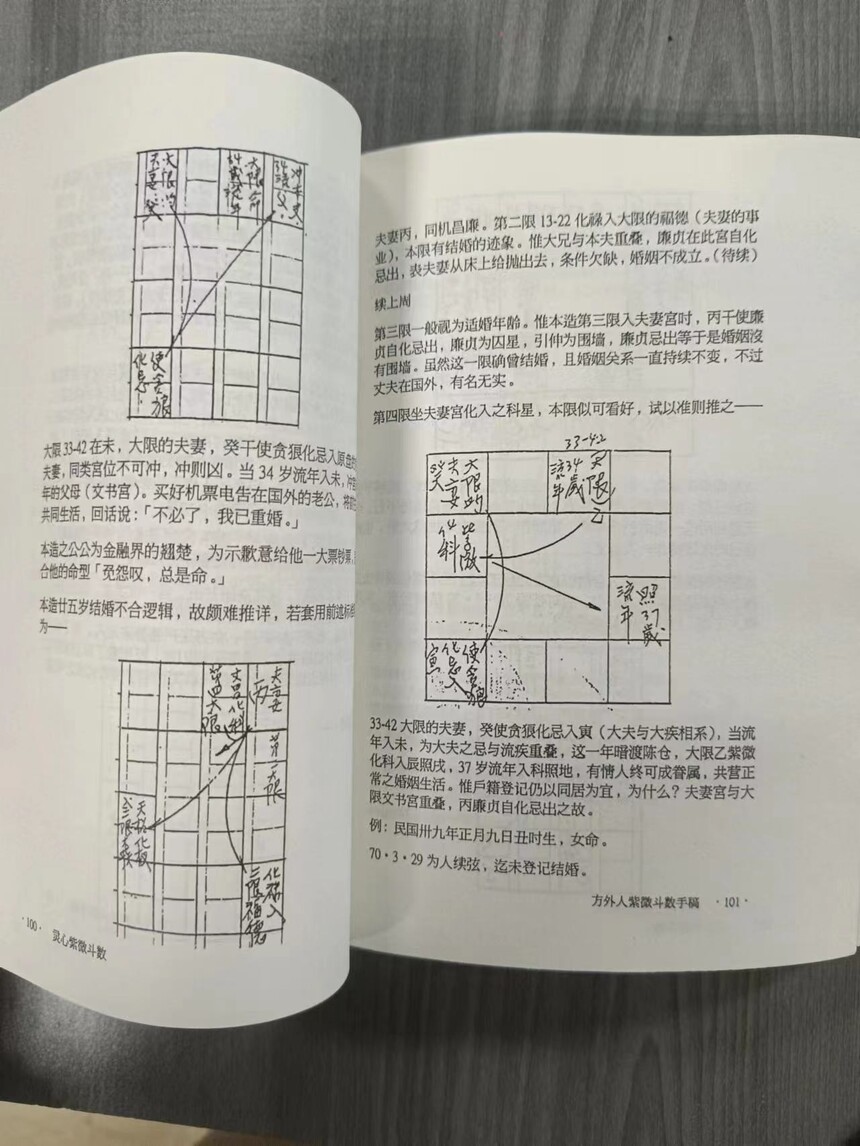 大限的
夫妻癸
大限命
34歲流年
34流父
冲本夫
使貪狼
化忌
大限33-42在未，大限的夫妻，癸干使贪狠化忌入原盘的
夫妻，同类宫位不可冲，冲则凶。当34岁流年入未，冲
年的父母（文书宫）。买好机票电告在国外的老公，将
共同生活，回话说：「不必了，我已重婚。」
本造之公公为金融界的翘楚，为示歉意给他一大票钞票，
合他的命型「免怨叹，总是命。」
本造廿五岁结婚不合逻辑，故颇难推详，若套用前述标
为——
夫妻
丙
文昌化科
第四大限
第二大限
天機化权
化祿入
二限福德
·100· 良心紫微斗数
夫妻丙，同机昌廉。第二限13-22化祿入大限的福德（夫妻的事
业），本限有结婚的迹象。惟大兄与本夫重叠，廉贞在此宫自化
忌出，表夫妻从床上给抛出去，条件欠缺，婚姻不成立。（待续）
续上周
第三限一般视为适婚年龄。惟本造第三限入夫妻宫时，丙干使廉
贞自化忌出，廉贞为囚星，引伸为围墙，廉贞忌出等于是婚姻沒
有围墙。虽然这一限确曾结婚，且婚姻关系一直持续不变，不过
丈夫在国外，有名无实。
第四限坐夫妻宫化入之科星，本限似可看好，试以准则推之——
33-42
大限的
夫妻
癸
大限
34歲
流年
乙
紫微
化科
照37歲
流年
使貪狼
化忌入
寅
33-42大限的夫妻，癸使贪狠化忌入寅（大夫与大疾相系），当流
年入未，为大夫之忌与流疾重叠，这一年暗渡陈仓，大限乙紫微
化科入辰照戌，37岁流年入科照地，有情人终可成眷属，共营正
常之婚姻生活。惟戶籍登记仍以同居为宜，为什么？夫妻宫与大
限文书宫重叠，丙廉贞自化忌出之故。
例：民国卅九年正月九日丑时生，女命。
70·3·29为人续弦，迄未登记结婚。
方外人紫微斗数手稿 ·101·